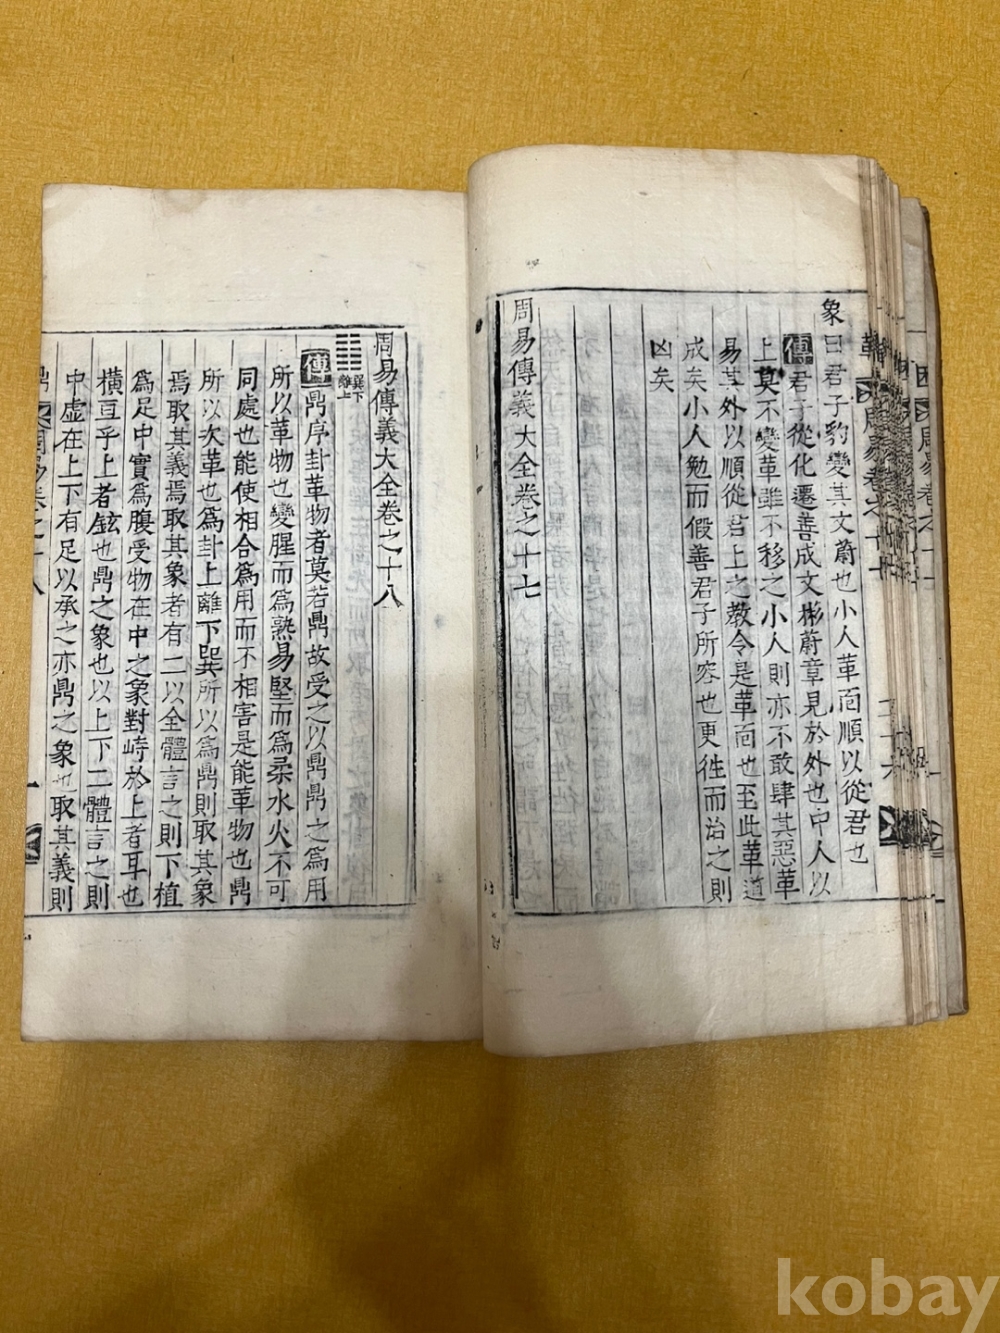 象曰君子豹變其文蔚也小人革面順以從君也
傳君子從化遷善成文彬蔚章見於外也中人以
上莫不變革雖不移之小人則亦不敢肆其惡革
易其外以順從君上之敎令是革面也至此革道
成矣小人勉而假善君子所容也更徃而治之則
凶矣
周易傳義大全卷之十七
周易傳義大全卷之十八
䷱巽下
離上
傳鼎序卦革物者莫若鼎故受之以鼎鼎之爲用
所以革物也變腥而爲熟易堅而爲柔水火不可
同處也能使相合爲用而不相害是能革物也鼎
所以次革也爲卦上離下巽所以爲鼎則取其象
焉取其義焉取其象者有二以全體言之則下植
爲足中實爲腹受物在中之象對峙於上者耳也
橫亘乎上者鉉也鼎之象也以上下二體言之則
中虛在上下有足以承之亦鼎之象也取其義則
鼎 周易卷之十八 一
革 周易卷之十七
kobay